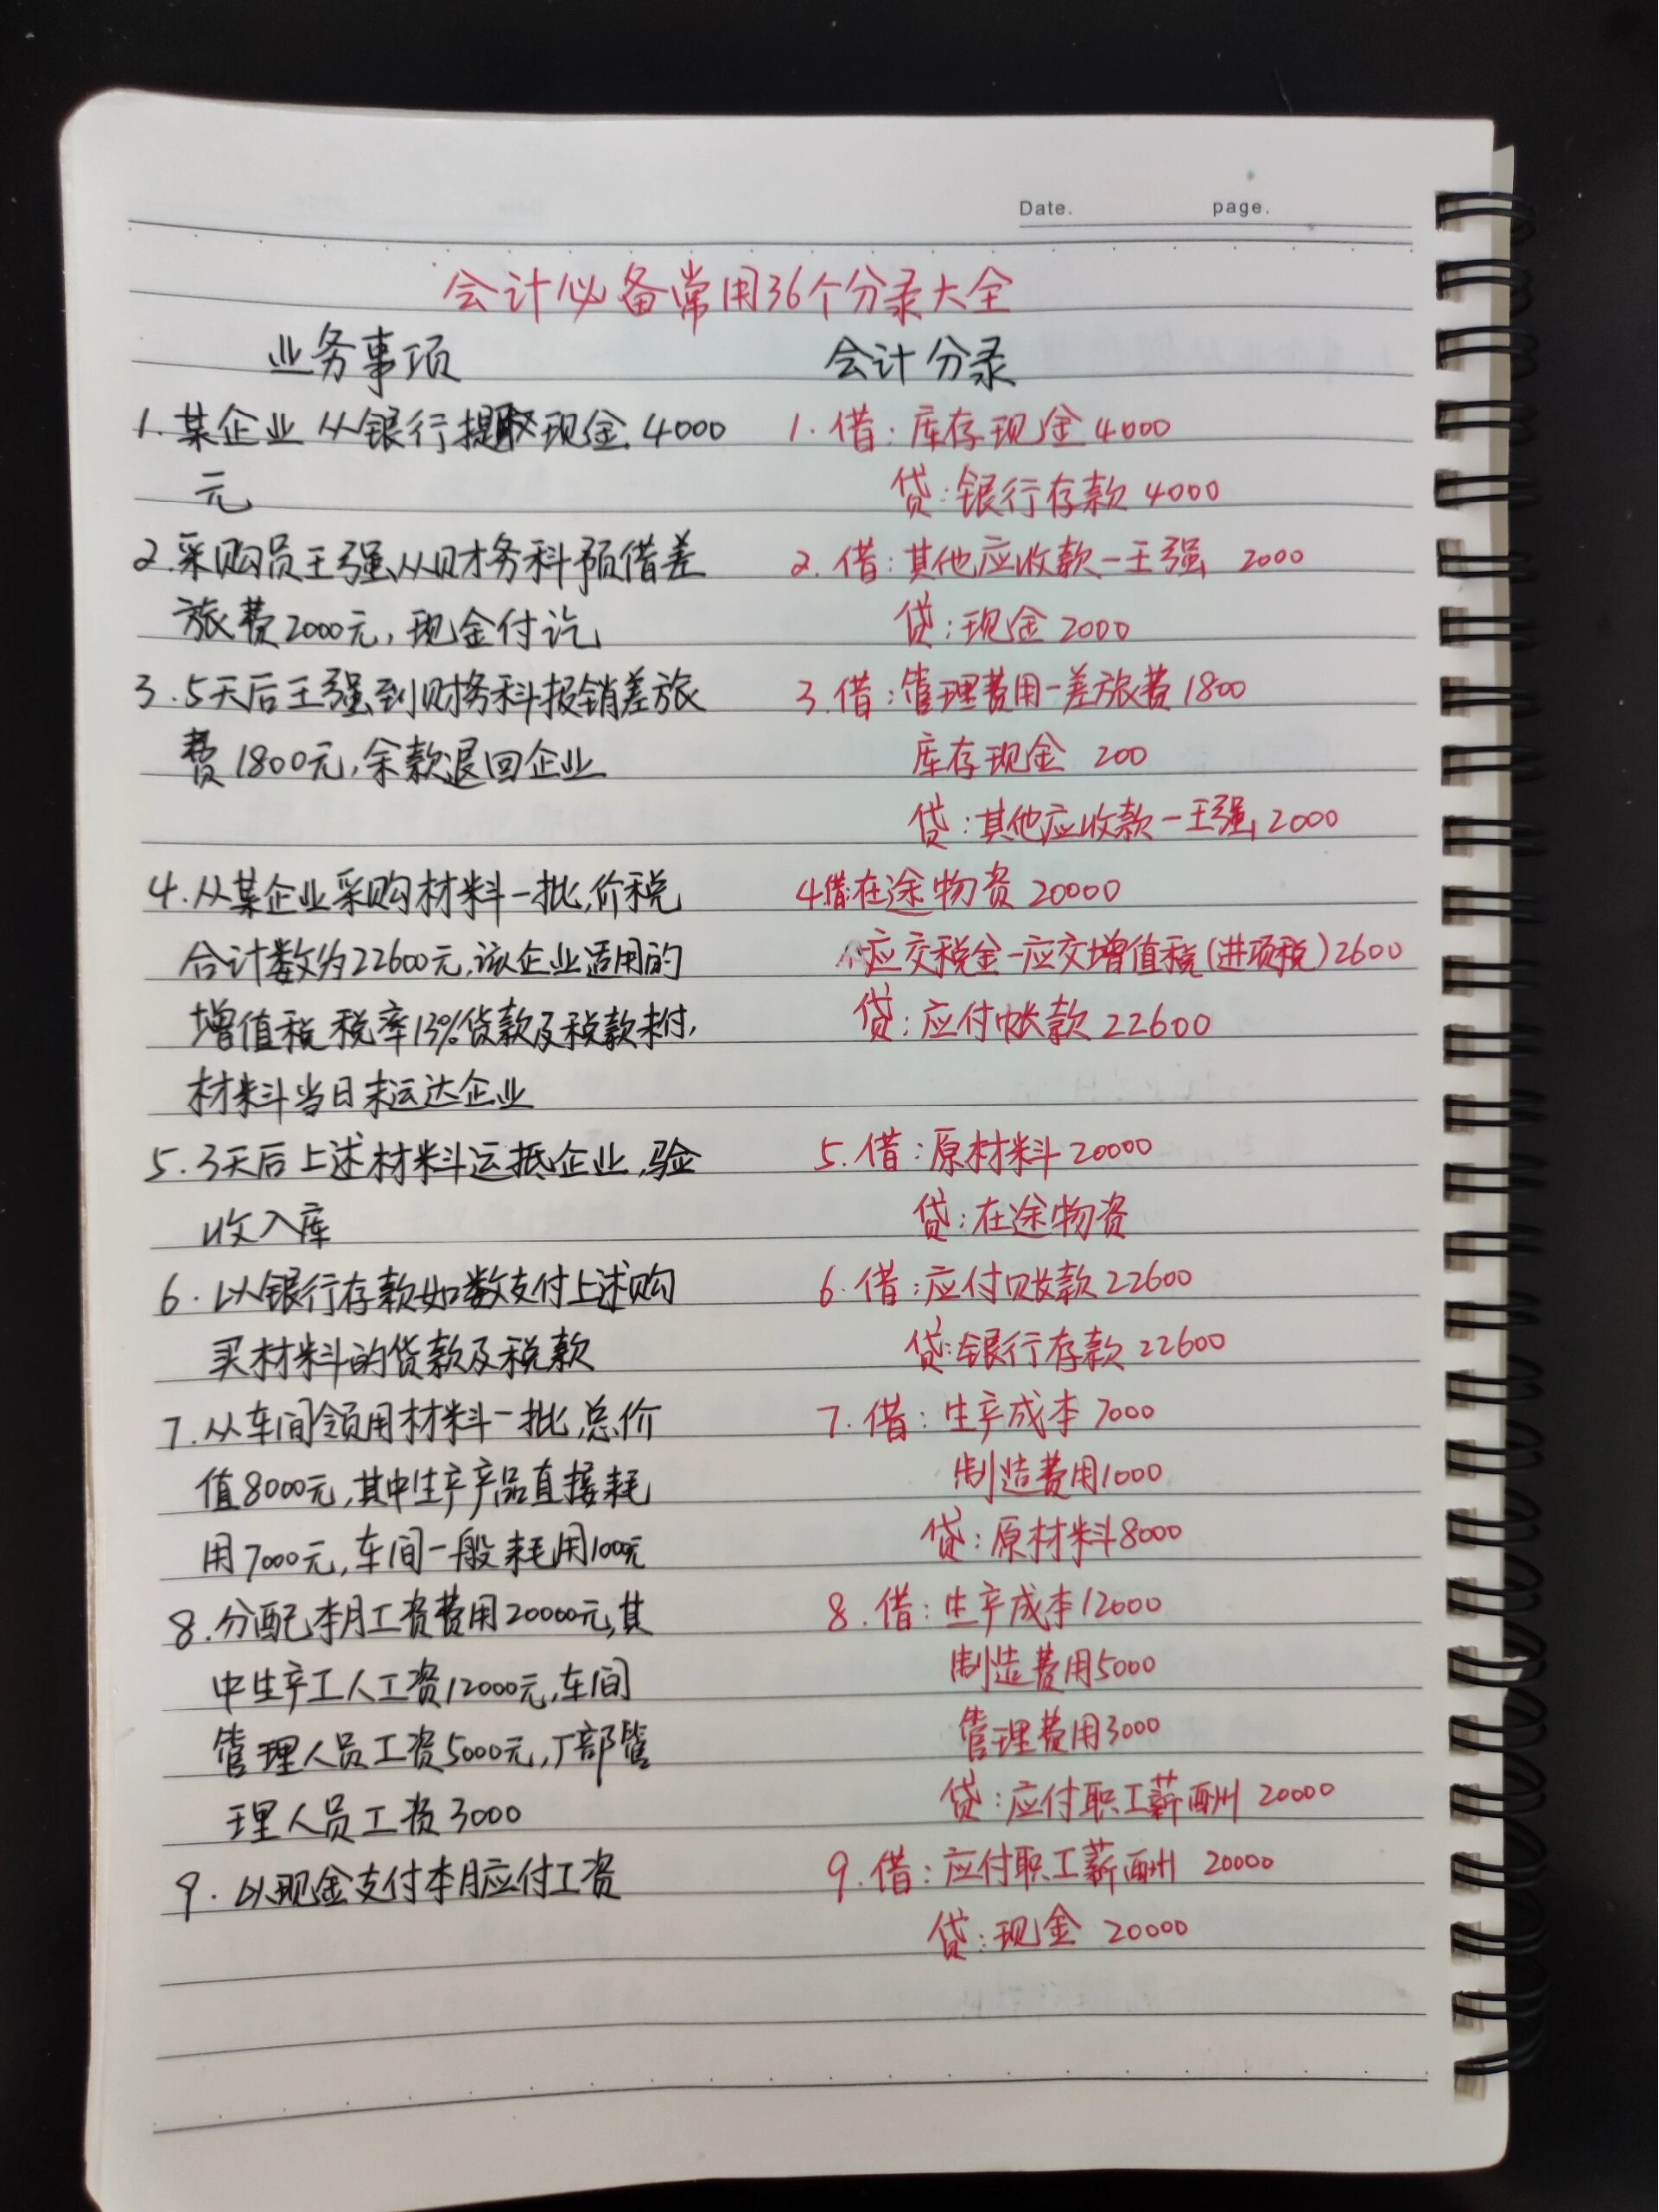 Date. page.
会计必备常用36个分录大全
业务事项 会计分录
1.某企业从银行提取现金4000 1.借:库存现金4000
元 贷:银行存款4000
2.采购员王强从财务科预借差 2.借:其他应收款-王强 2000
旅费2000元,现金付讫 贷:现金2000
3.5天后王强到财务科报销差旅 3.借:管理费用-差旅费1800
费1800元,余款退回企业 库存现金 200
贷:其他应收款-王强2000
4.从某企业采购材料一批,价税 4借:在途物资20000
合计数为22600元,该企业适用的 应交税金-应交增值税(进项税)2600
增值税税率13%货款及税款未付, 贷:应付帐款22600
材料当日未运达企业
5.3天后上述材料运抵企业,验 5.借:原材料20000
收入库 贷:在途物资
6.以银行存款如数支付上述购 6.借:应付账款22600
买材料的货款及税款 贷:银行存款22600
7.从车间领用材料一批,总价 7.借:生产成本7000
值8000元,其中生产产品直接耗 制造费用1000
用7000元,车间一般耗用100元 贷:原材料8000
8.分配本月工资费用20000元,其 8.借:生产成本12000
中生产工人工资12000元,车间 制造费用5000
管理人员工资5000元,厂部管 管理费用3000
理人员工资3000 贷:应付职工薪酬 20000
9.以现金支付本月应付工资 9.借:应付职工薪酬 20000
贷:现金 20000